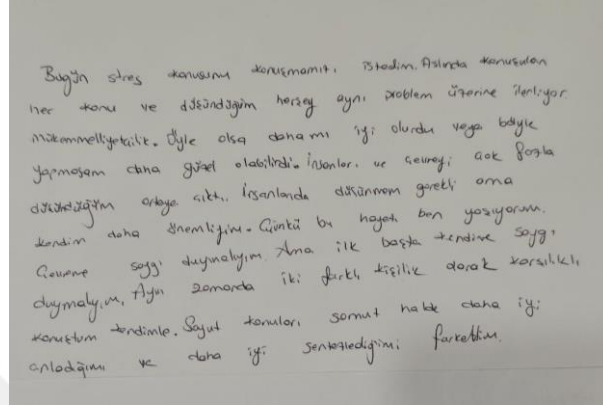 Bugün stres konusunu konuşmamızı istedim. Aslında konuşulan
her konu ve düşündüğüm herşey aynı problem üzerine ilerliyor
mükemmelliyetcilik. Öyle olsa daha mı iyi olurdu veya böyle
yapmasam daha güzel olabilirdi. İnsanları ve çevreyi çok fazla
düşündüğüm ortaya çıktı. İnsanlarıda düşünmem gerekli ama
kendim daha önemliyim. Çünkü bu hayatı ben yaşıyorum.
Çevreme saygı duymalıyım. Ama ilk başta kendime saygı
duymalıyım. Aynı zamanda iki farklı kişilik olarak karşılıklı
konuştum kendimle. Soyut konuları somut halde daha iyi
anladığımı ve daha iyi sentezlediğimi farkettim.